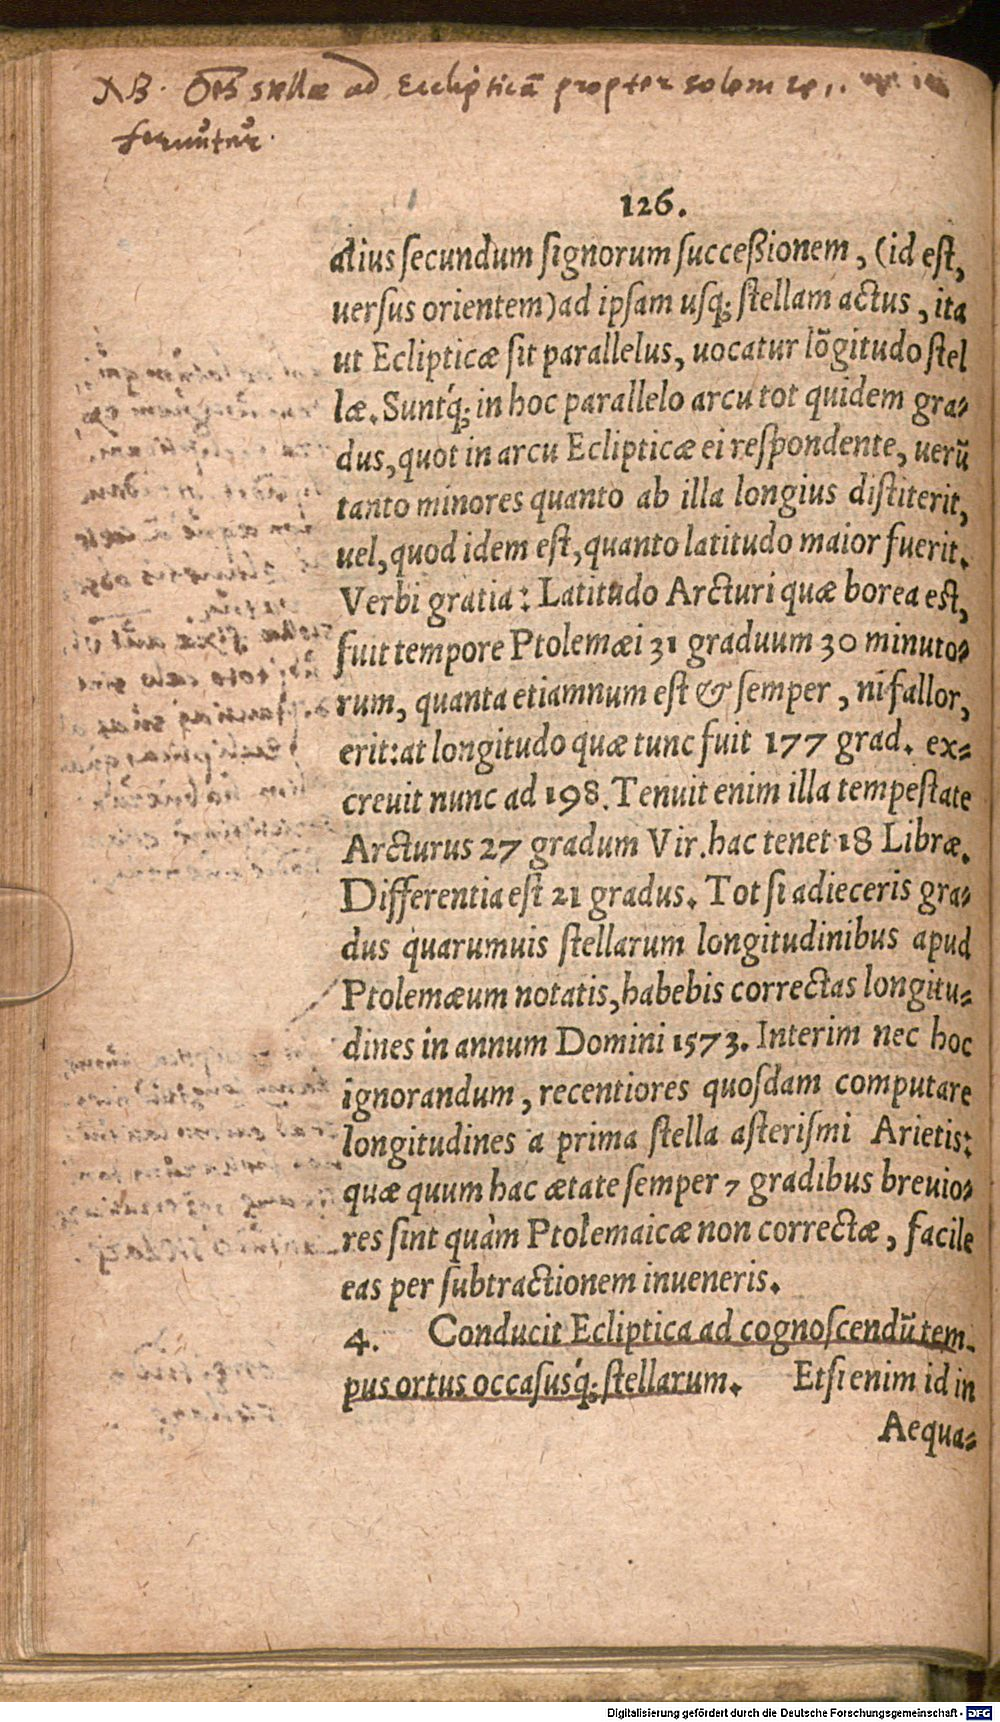 NB. Oēs stellæ ad Eclipticā propter solem
feruntur.
126.
alius secundum signorum succeßionem, (id est,
uersus orientem) ad ipsam usq; stellam actus, ita
ut Eclipticæ sit parallelus, uocatur lōgitudo stel
læ. Suntq́; in hoc parallelo arcu tot quidem gra-
dus, quot in arcu Eclipticæ ei respondente, uerū
tanto minores quanto ab illa longius distiterit,
uel, quod idem est, quanto latitudo maior fuerit.
Verbi gratia: Latitudo Arcturi quæ borea est,
fuit tempore Ptolemæi 31 graduum 30 minuto-
rum, quanta etiamnum est & semper, ni fallor,
erit: at longitudo quæ tunc fuit 177 grad. ex-
creuit nunc ad 198. Tenuit enim illa tempestate
Arcturus 27 gradum Vir. hac tenet 18 Libræ.
Differentia est 21 gradus. Tot si adieceris gra-
dus quarumuis stellarum longitudinibus apud
Ptolemæum notatis, habebis correctas longitu-
dines in annum Domini 1573. Interim nec hoc
ignorandum, recentiores quosdam computare
longitudines a prima stella asterismi Arietis:
quæ quum hac ætate semper 7 gradibus breuio-
res sint quàm Ptolemaicæ non correctæ, facile
eas per subtractionem inueneris.
4. Conducit Ecliptica ad cognoscendū tem-
pus ortus occasusq́; stellarum. Etsi enim id in
Aequa-
Digitalisierung gefördert durch die Deutsche Forschungsgemeinschaft - DFG